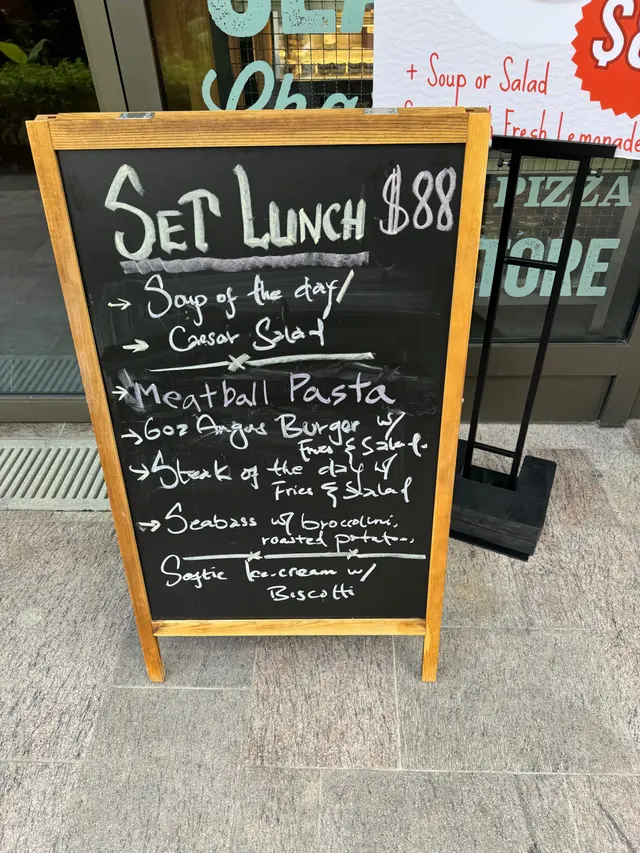 + Soup or Salad
Fresh Lemonade
PIZZA
SET LUNCH $88
→ Soup of the day/
→ Caesar Salad
→ Meatball Pasta
→ 6oz Angus Burger w/
Fries & Salad.
→ Steak of the day w/
Fries & Salad
→ Seabass w/ broccolini,
roasted potatoes,
Ice-cream w/
Biscotti